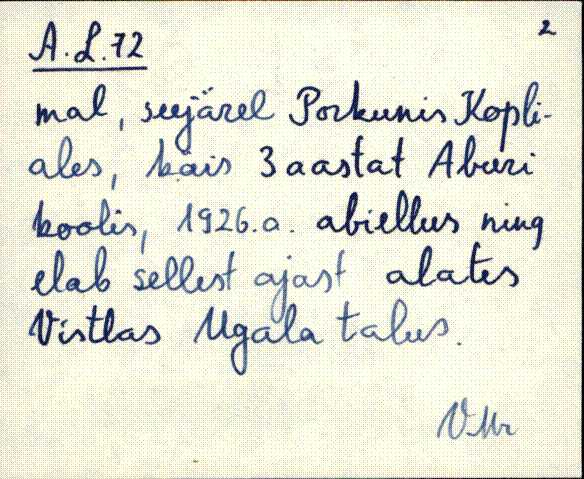 A.L.72
2
mal, seejärel Porkunis Kopli-
ales, käis 3 aastat Aburi
koolis, 1926.a. abiellus ning
elab sellest ajast alates
Vistlas Ugala talus.
VMr